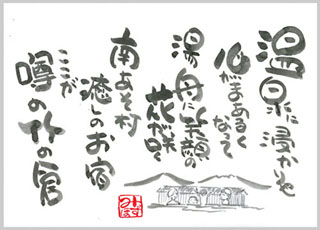 温泉に浸かって
心がまあるく
なって
湯舟に笑顔の
花が咲く
南あそ村
癒しのお宿
ここが
噂の竹の倉